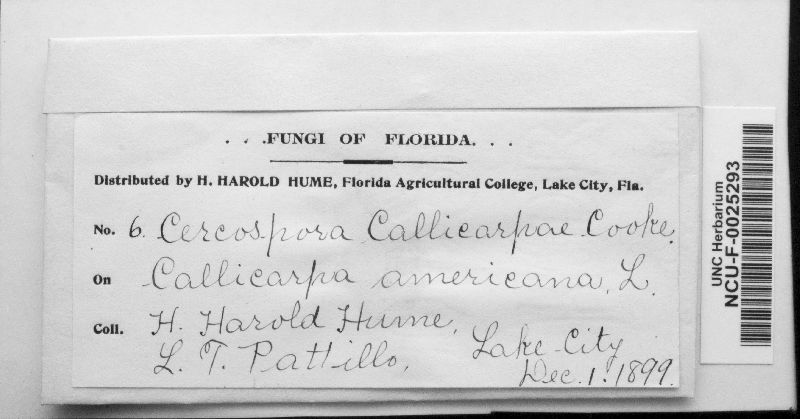 . . .FUNGI OF FLORIDA. . .
Distributed by H. HAROLD HUME, Florida Agricultural College, Lake City, Fla.
No. 6. Cercospora Callicarpae Cooke.
On Callicarpa americana, L.
Coll. H. Harold Hume,
L. T. Pattillo,
Lake City
Dec. 1. 1899.
UNC Herbarium
NCU-F-0025293